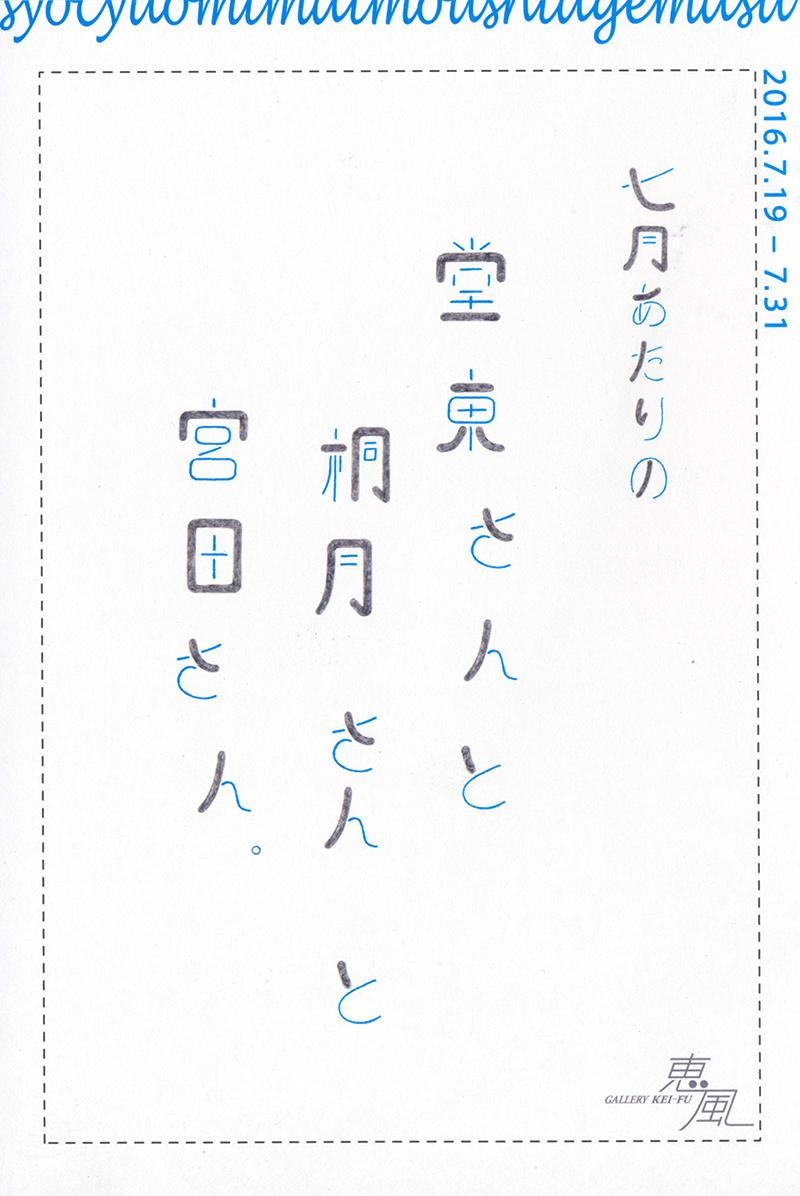 syocyuomimaimoushiagemasu
2016.7.19 – 7.31
七月あたりの
堂東さんと
桐月さんと
宮田さん。
恵風
GALLERY KEI-FU